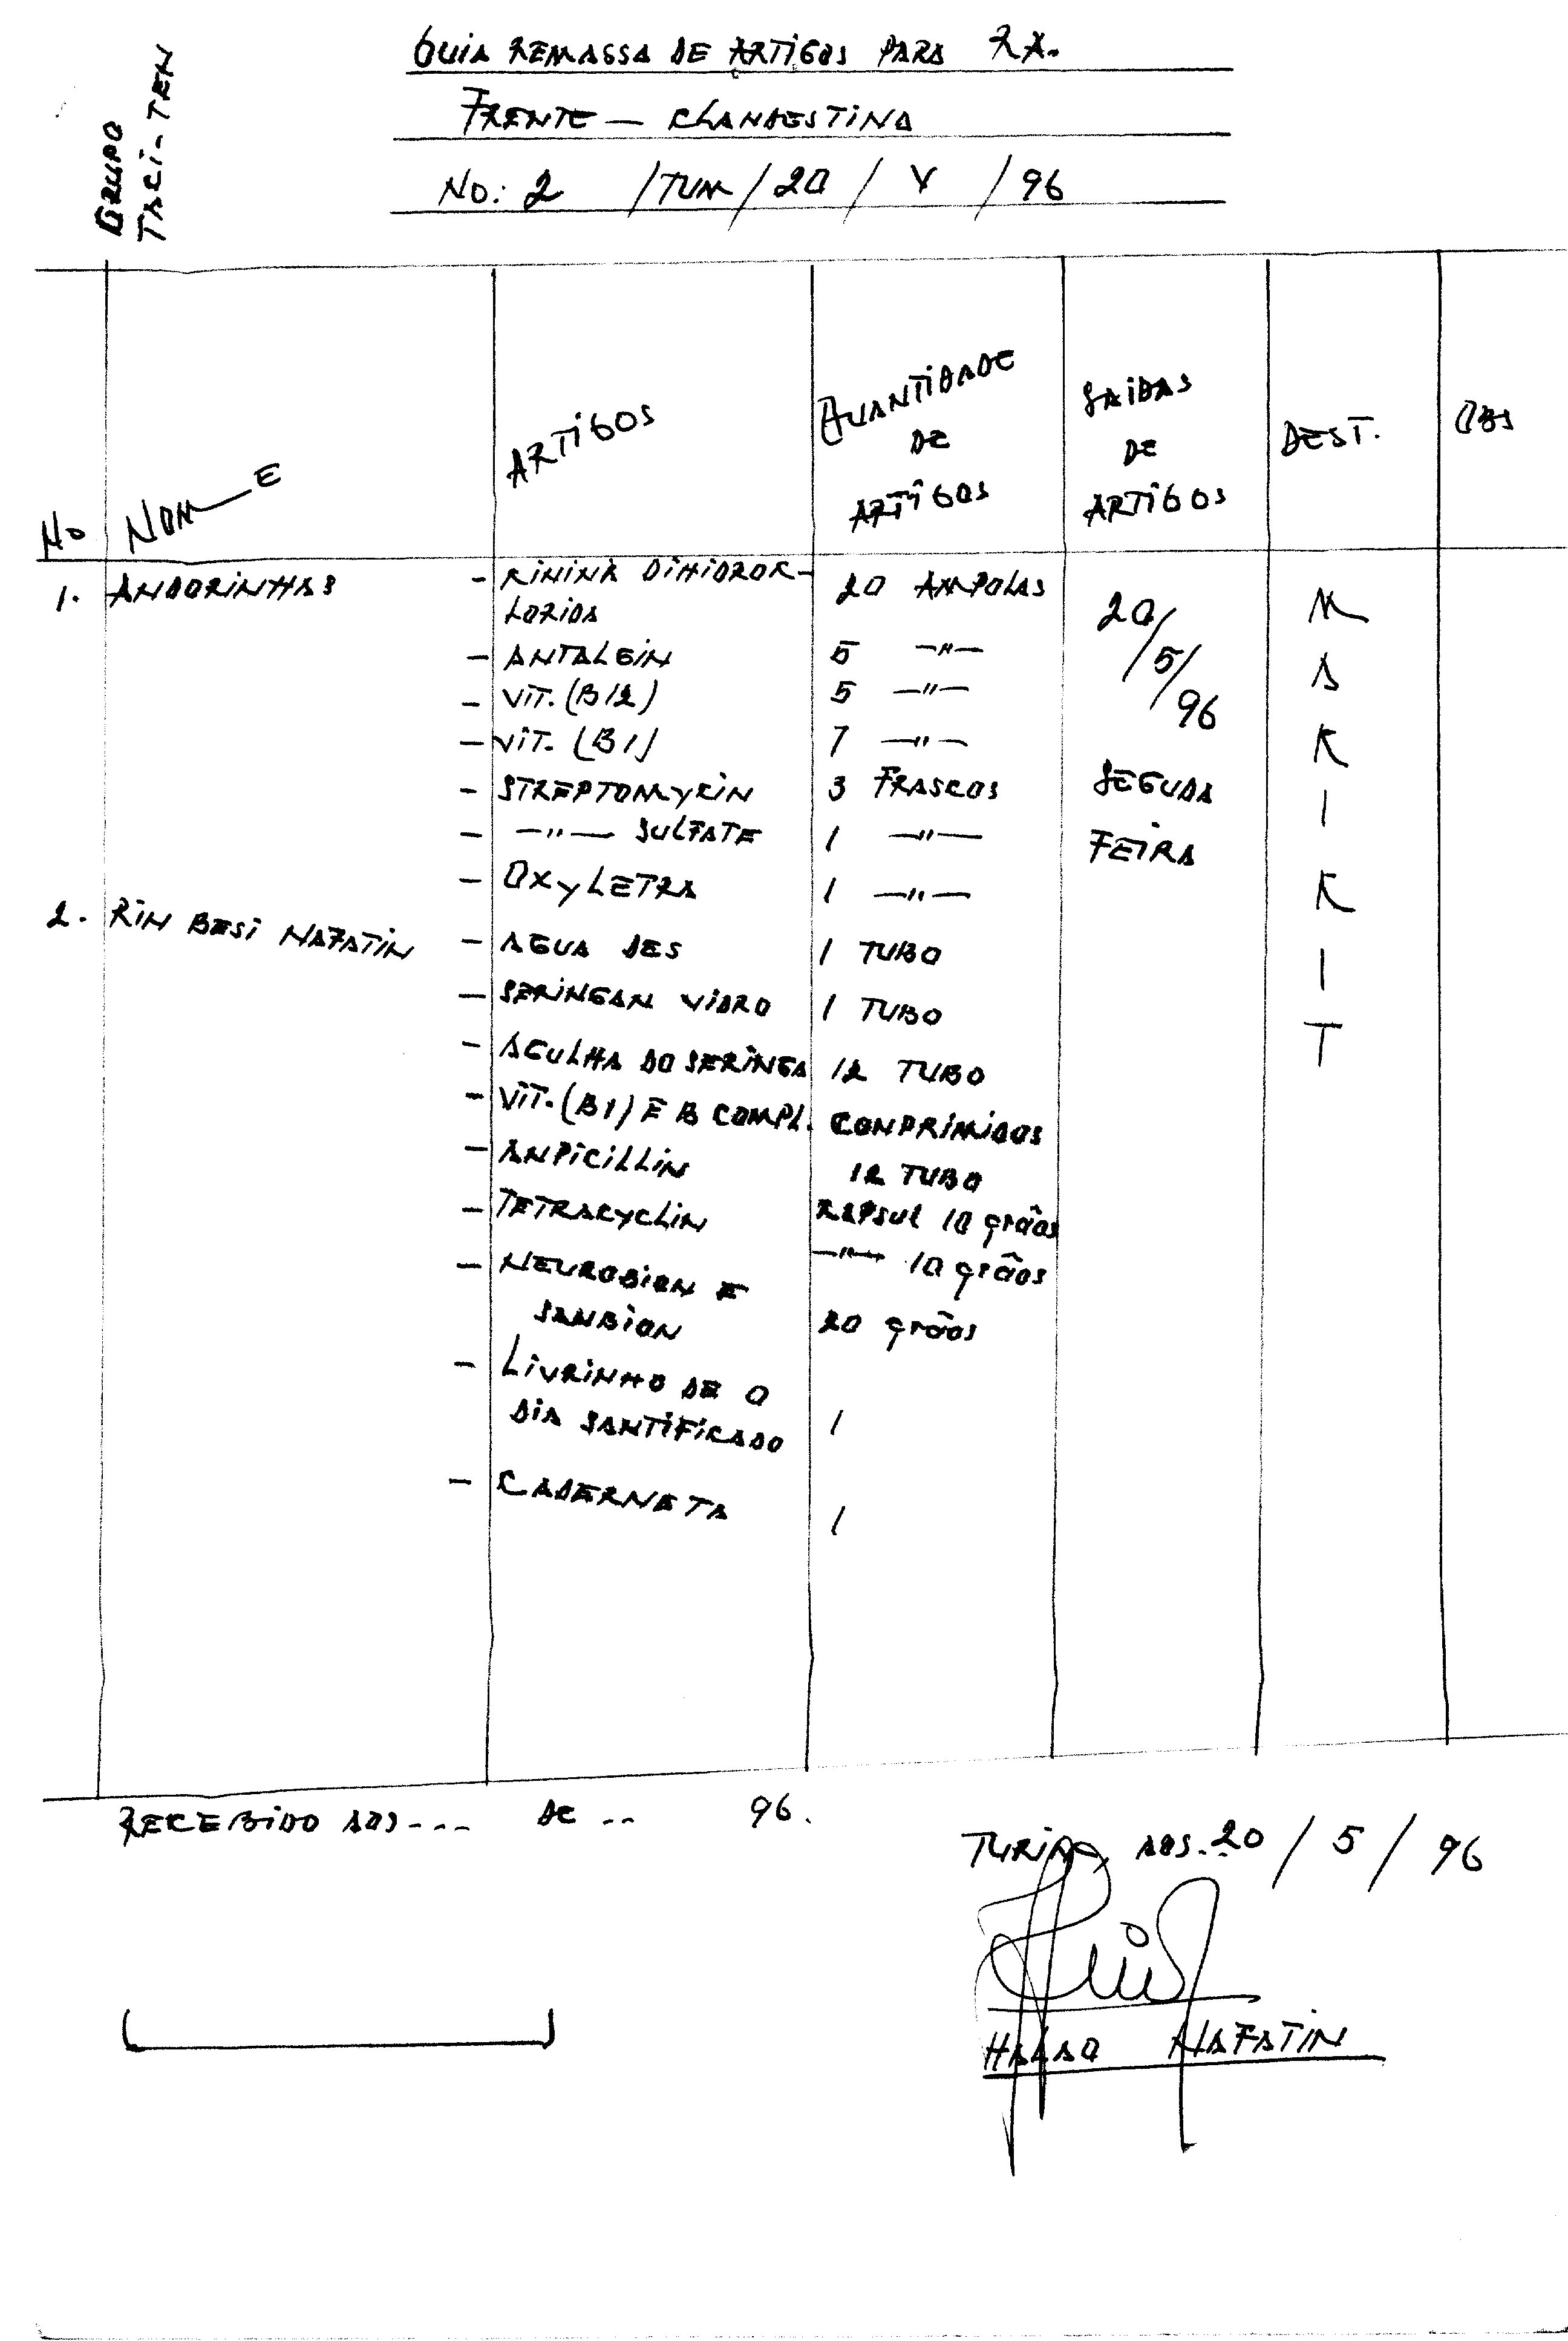 GRUPO
TACI-TEN
GUIA REMASSA DE ARTIGOS PARA RX.
FRENTE — CLANDESTINA
No: 2 /TUM/20/V/96
No NOME ARTIGOS QUANTIDADE DE ARTIGOS SAIDAS DE ARTIGOS DEST. OBS
1. ANDORINHAS - KININA DIHIDROK- 20 AMPOLAS 20/5/96 M
LORIDA
- ANTALGIN 5 —"— A
- VIT. (B12) 5 —"—
- VIT. (B1) 7 —"— K
- STREPTOMYKIN 3 FRASCOS SEGUDA I
- —"— SULFATE 1 —"— FEIRA
- OXYLETRA 1 —"— K
2. RIN BESI NAFATIN - AGUA DES 1 TUBO I
- SERINGAN VIDRO 1 TUBO
- AGULHA DO SERINGA 12 TUBO T
- VIT. (B1) E B COMPL. CONPRIMIDOS
- ANPICILLIN 12 TUBO
- TETRACYCLIN KAPSUL 10 grãos
- NEUROBION E —"— 10 grãos
SANBION 20 grãos
- LIVRINHO DE O
DIA SANTIFICADO 1
- CADERNETA 1
RECEBIDO AOS --- DE -- 96.
AOS. 20/5/96
NAFATIN